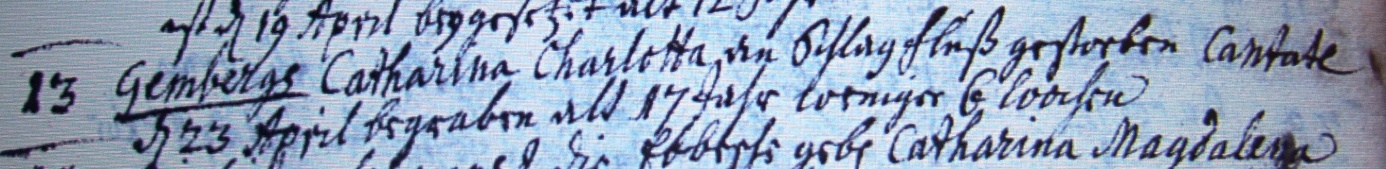 ist d 19 April beygesetzt alt 12
13 Gembergs Catharina Charlotta an Schlagfluß gestorben Cantate
d 23 April begraben alt 17 Jahr weniger 6 wochen
die geb Catharina Magdalena